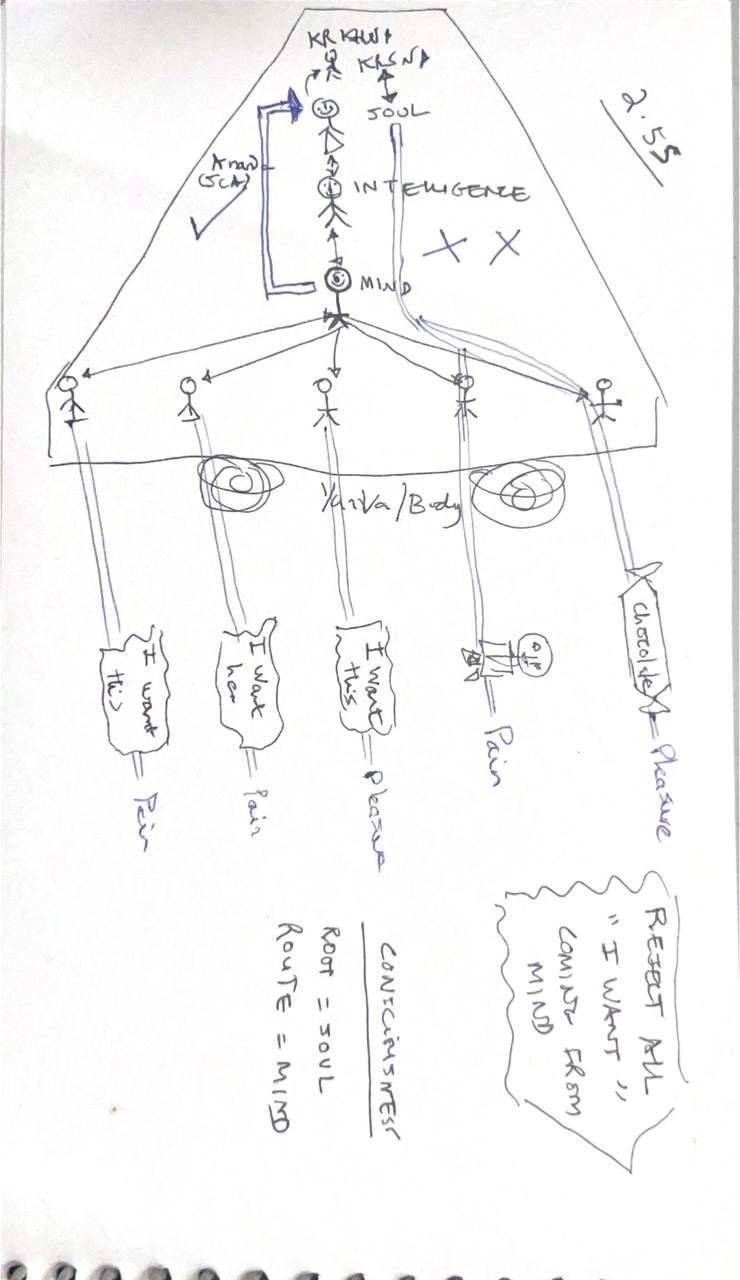 2.55
KRSNA
SOUL
INTELLIGENCE
MIND
X X
/Body
I want
this
I want
her
I want
this
chocolate
Pain
Pain
Pleasure
Pain
Pleasure
REJECT ALL
"I WANT"
COMING FROM
MIND
ROOT = SOUL
ROUTE = MIND